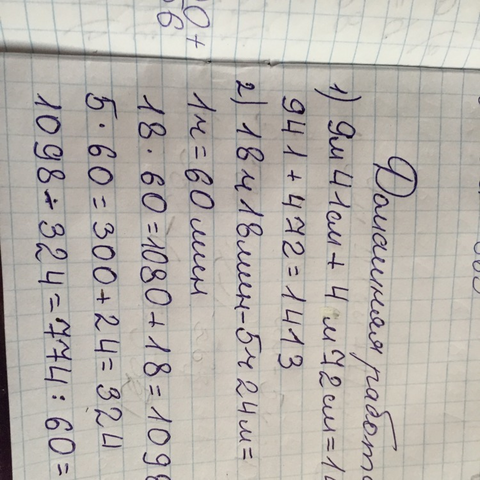 Домашняя работа
1) 9м 41см + 4 м 72 см = 14
941 + 472 = 1413
2) 18 ч 18 мин - 5 ч 24 м =
1ч = 60 мин
18 · 60 = 1080 + 18 = 1098
5 · 60 = 300 + 24 = 324
1098 - 324 = 774 : 60 =